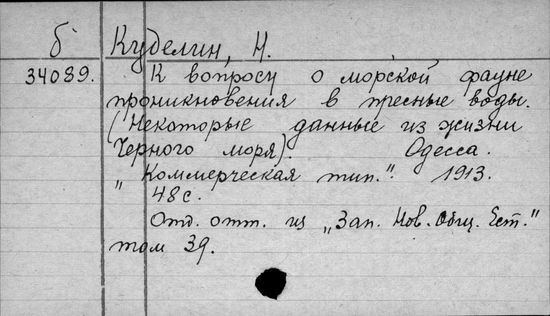 б Куделин, Н.
34089. К вопросу о морской фауне
проникновения в пресные воды.
(Некоторые данные из жизни
Черного моря). Одесса.
„Коммерческая тип." 1913.
48 с.
Отд. отт. из „Зап. Нов. Общ. Ест."
том 39.